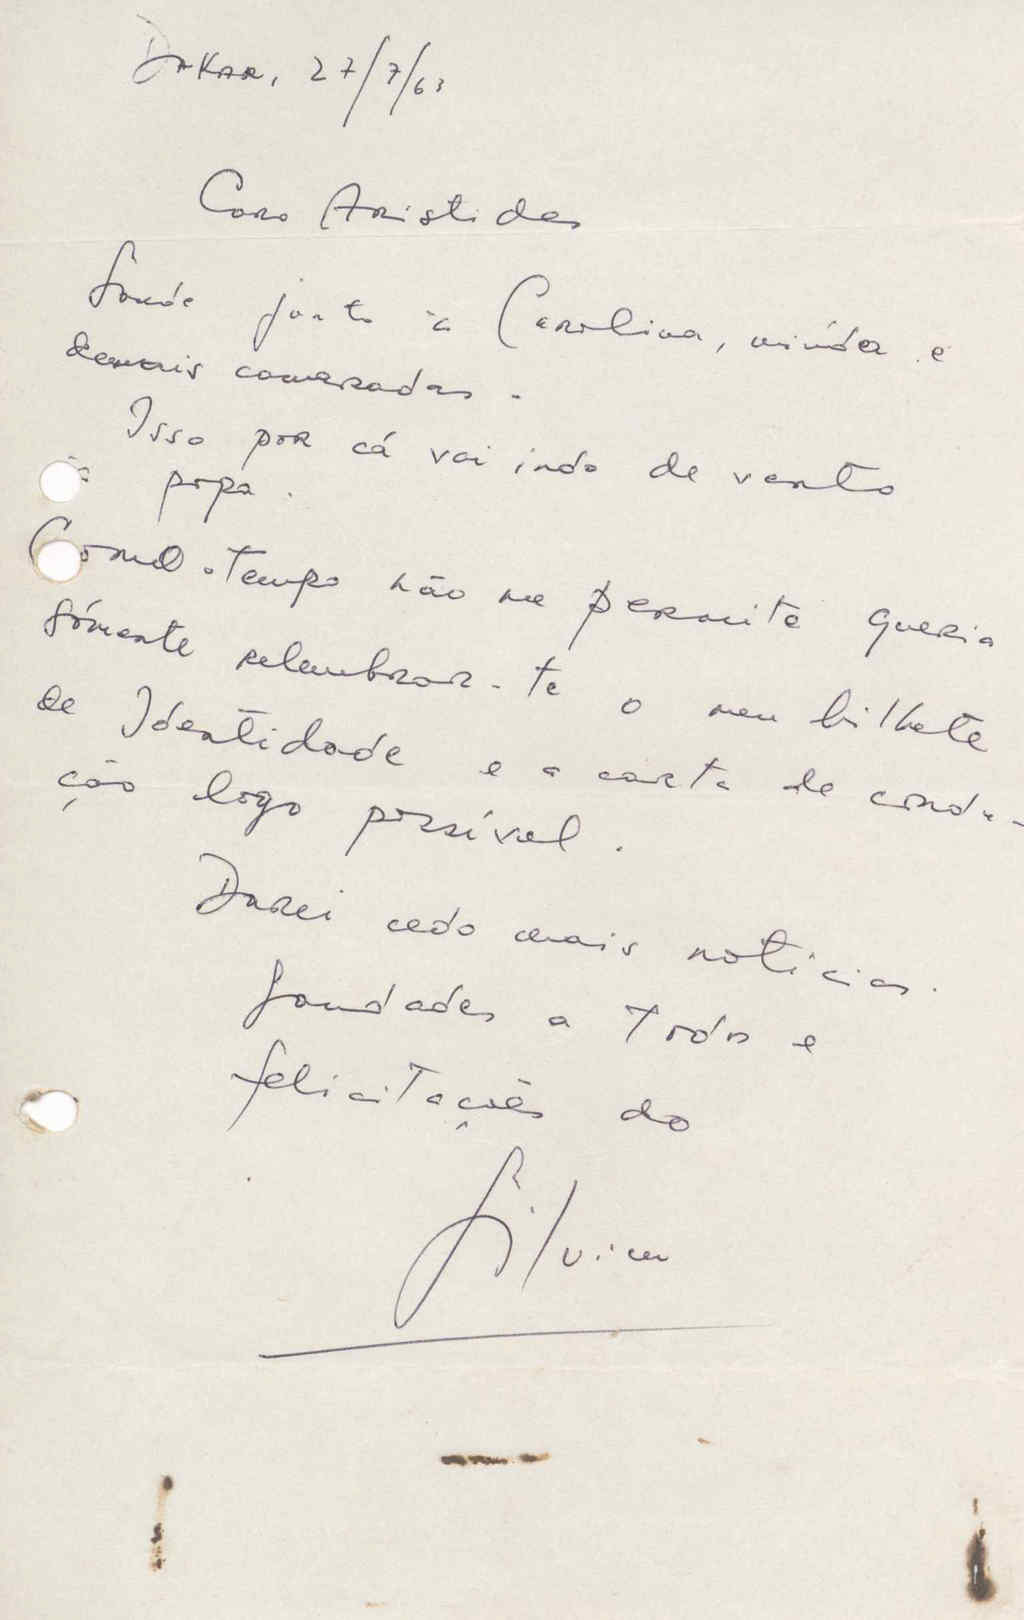 Dakar, 27/7/63
Caro Aristides
Saúde junto à Carolina, miúda e
demais camaradas.
Isso por cá vai indo de vento
à popa.
Como o tempo não me permite queria
sómente relembrar-te o meu bilhete
de Identidade e a carta de condu-
ção logo possível.
Darei cedo mais notícias.
Saudades a todos e
felicitações do